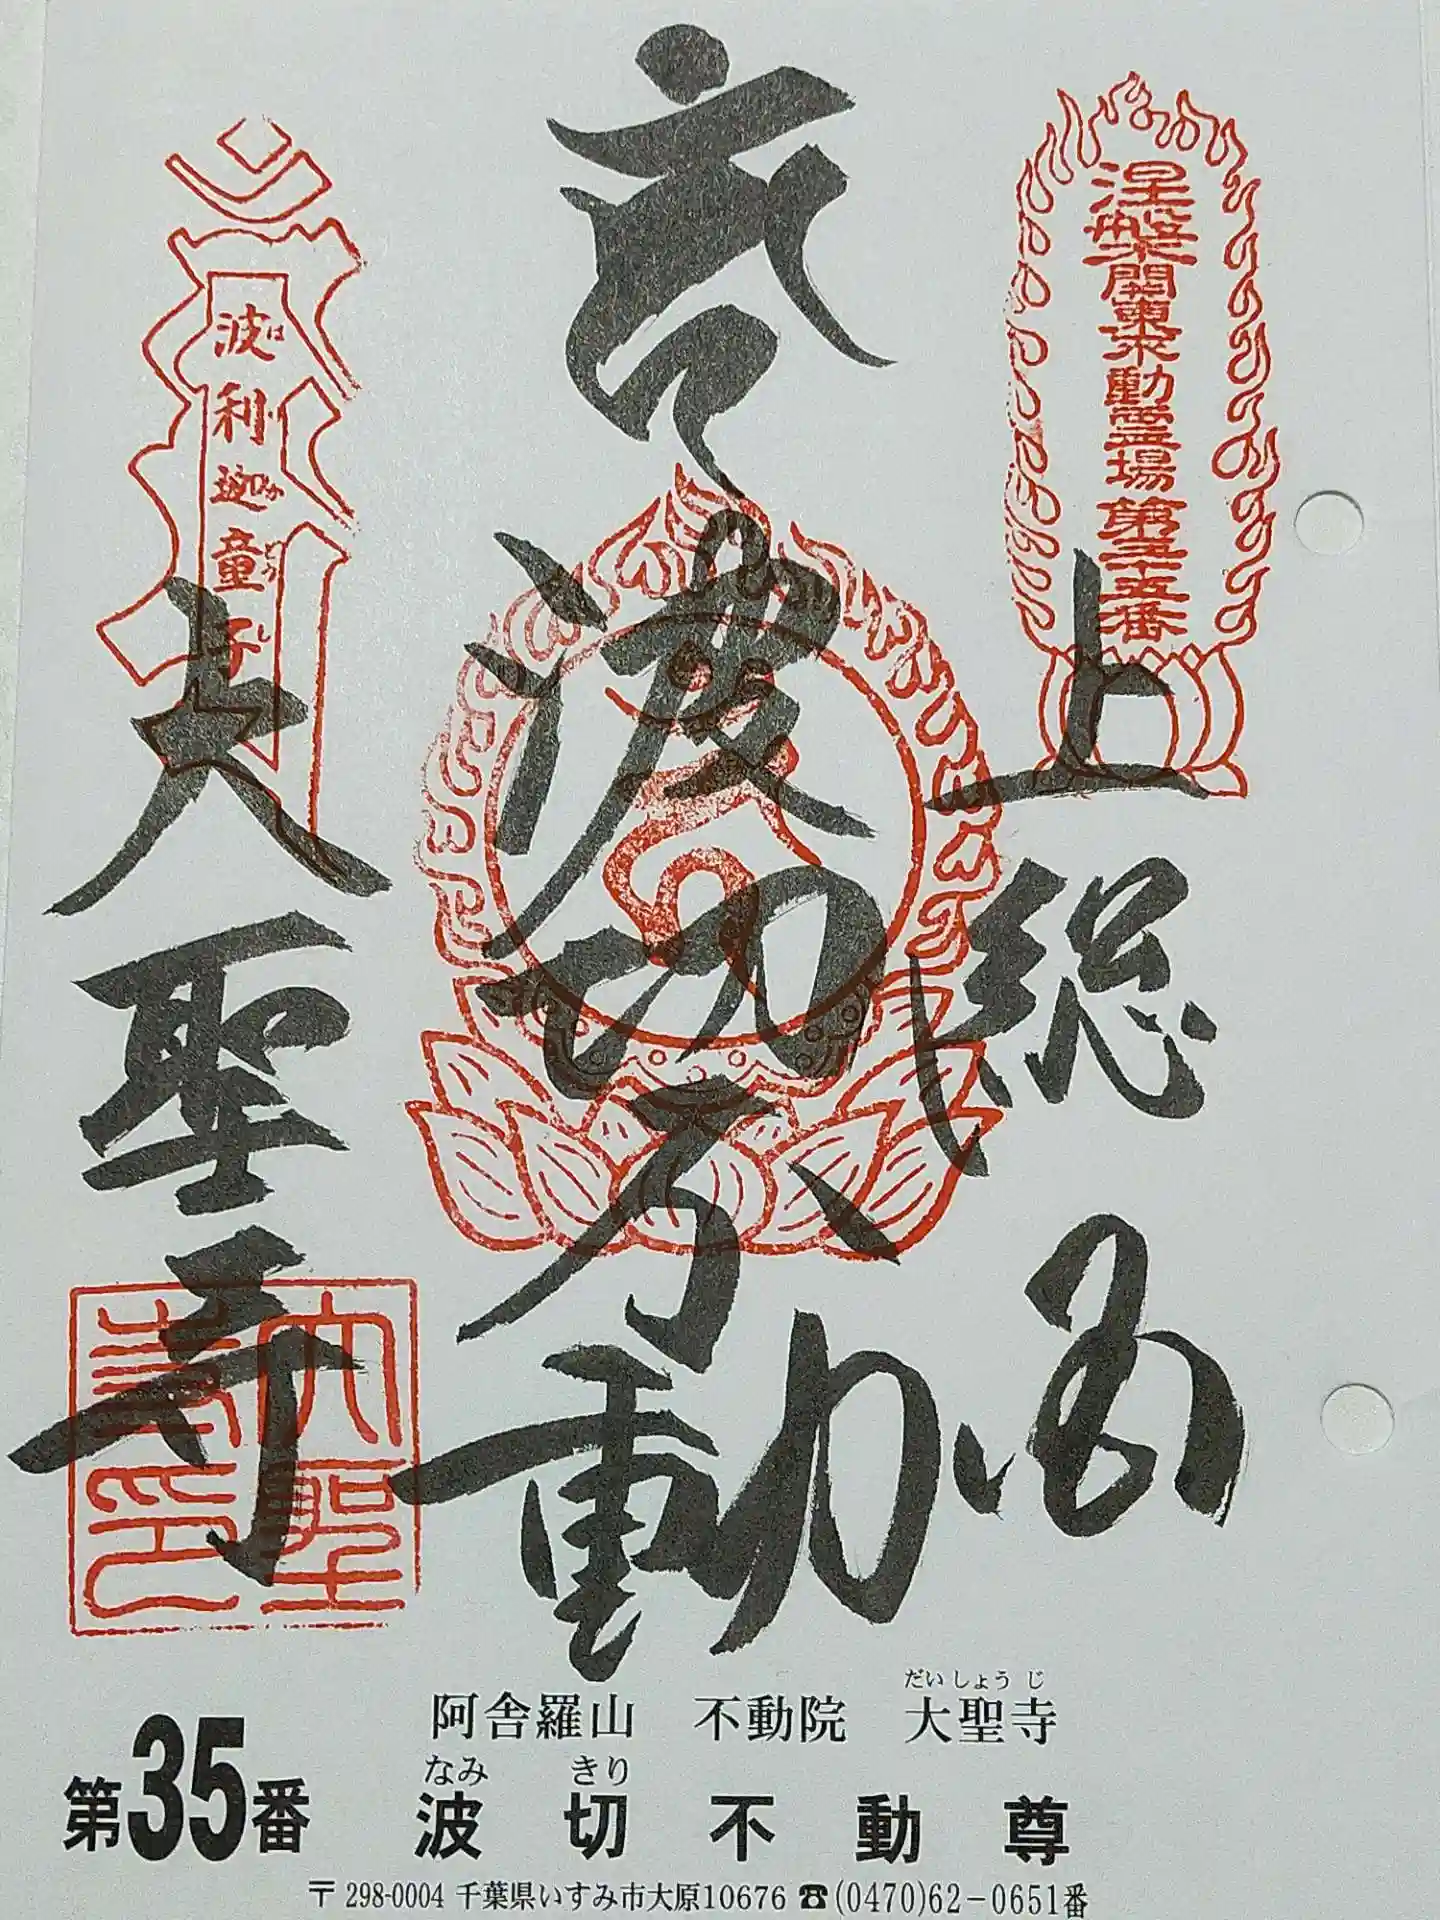 涅槃 関東不動霊場 第三十五番
上総国
波切不動
大聖寺
波利迦童子
大聖寺印
だいしょうじ
阿舎羅山 不動院 大聖寺
なみ きり
第35番 波切不動尊
〒298-0004 千葉県いすみ市大原10676 ☎(0470)62-0651番